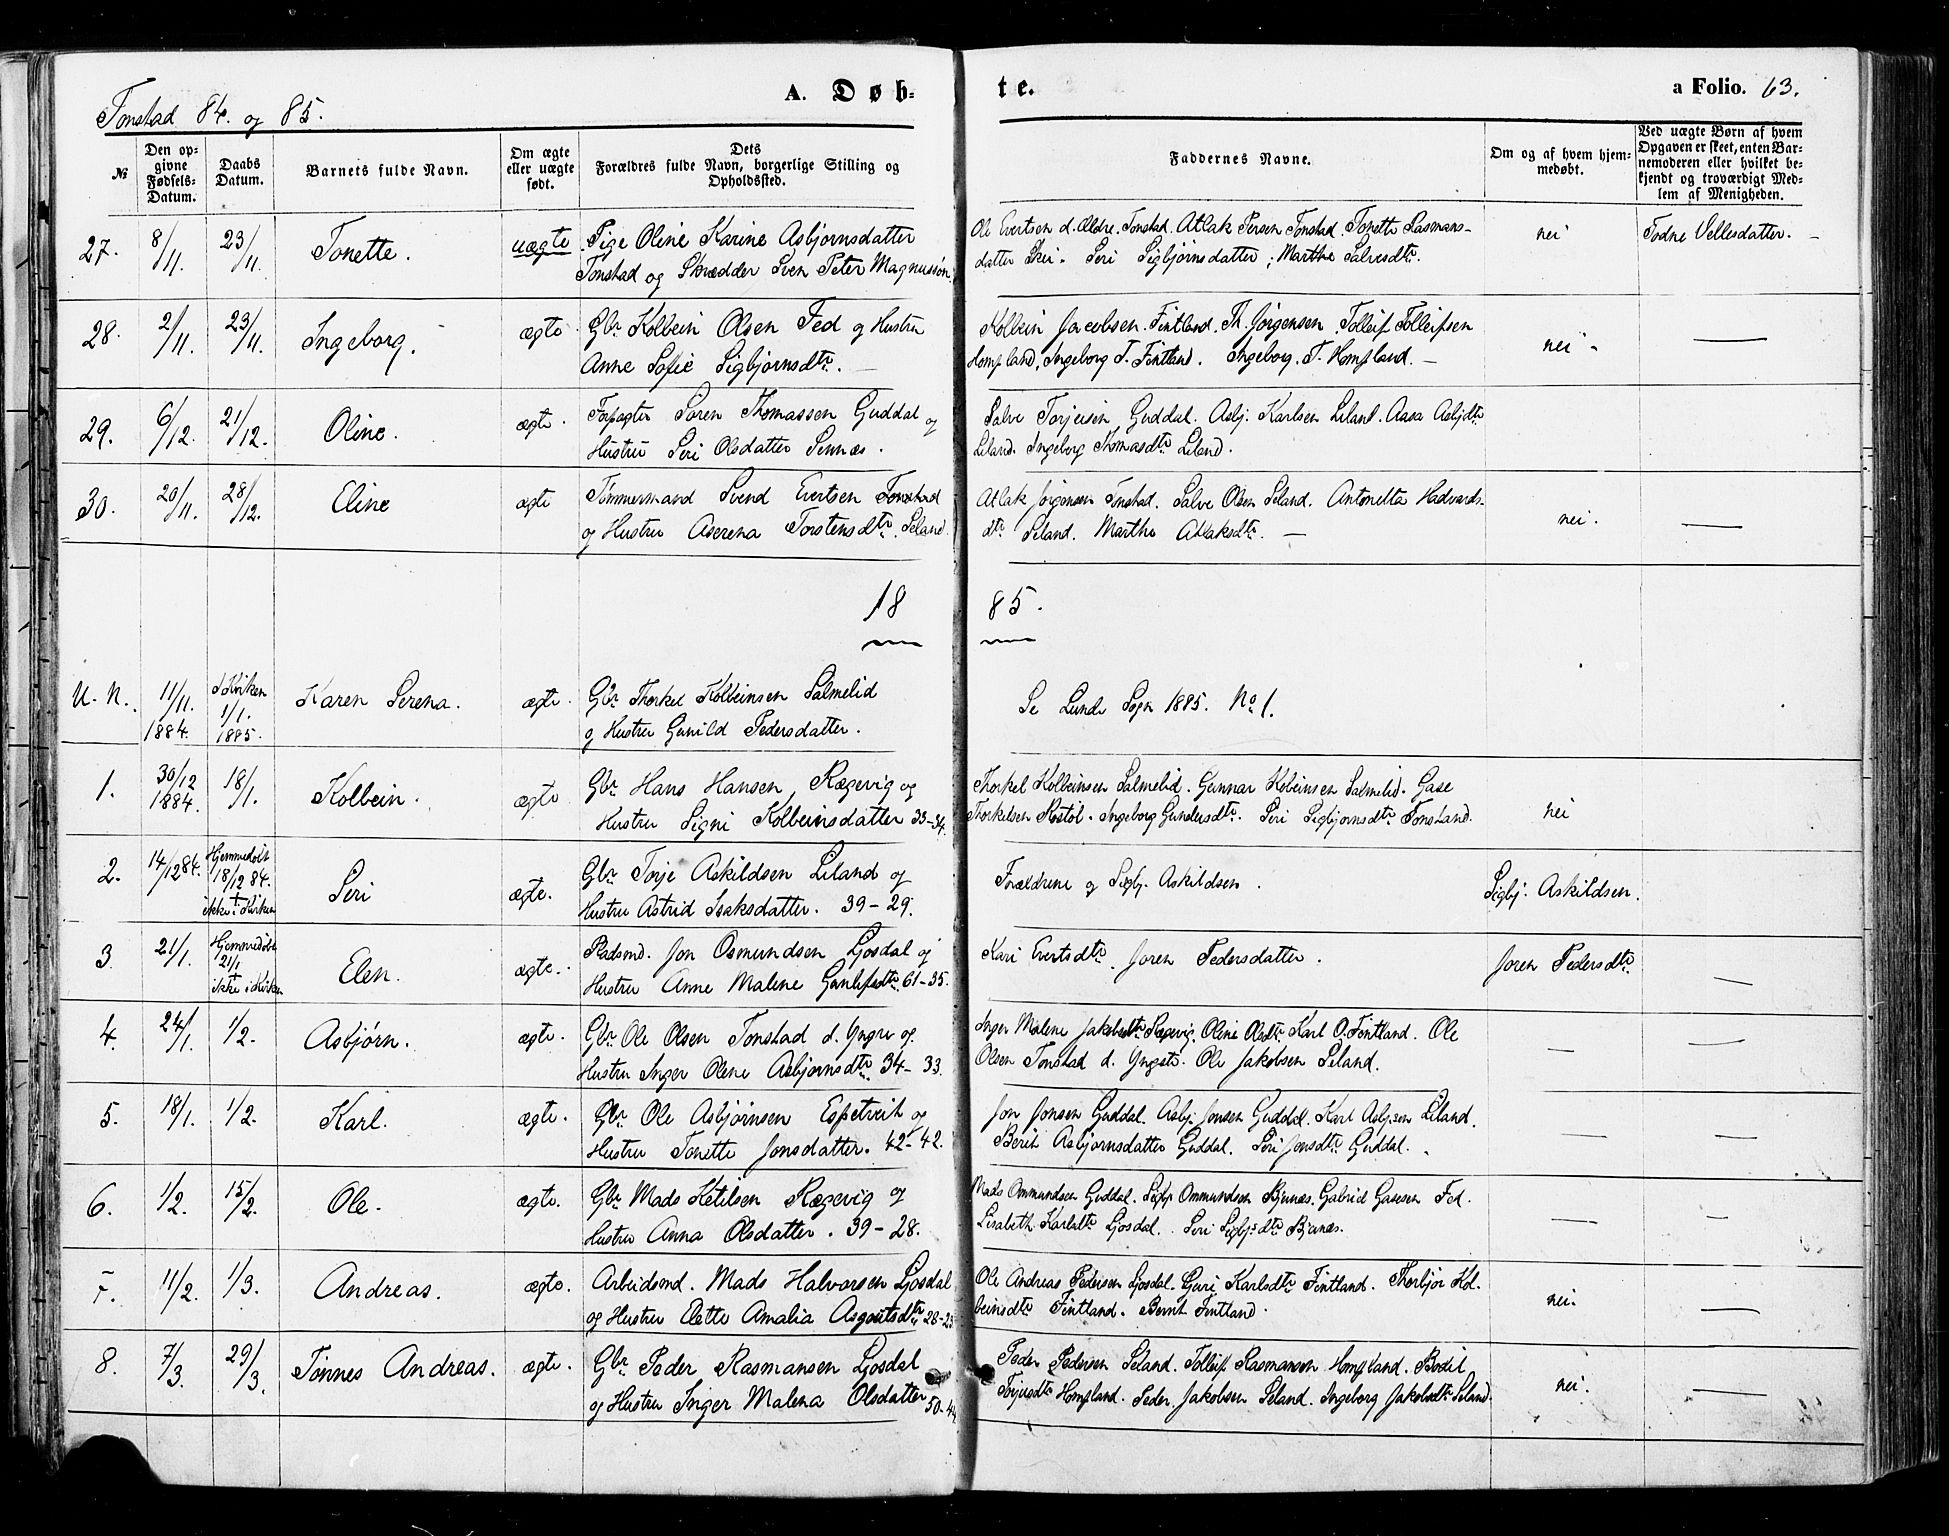 Tonstad 84. og 85.
A. Døb-
te.
a Folio. 63.
№
Den op-
givne
Fødsels-
Datum.
Daabs
Datum.
Barnets fulde Navn.
Om ægte
eller uægte
født.
Dets
Forældres fulde Navn, borgerlige Stilling og
Opholdssted.
Faddernes Navne.
Om og af hvem hjem-
medøbt.
Ved uægte Børn af hvem
Opgaven er skeet, enten Bar-
nemoderen eller hvilket be-
kjendt og troværdigt Med-
lem af Menigheden.
27. 8/11. 23/11. Tonette. uægte Pige Oline Karine Asbjørnsdatter
Tonstad og Skrædder Sven Peter Magnussøn
Ole Evertsen d. Ældre. Tonstad. Atlak Persen Tonstad Tonette Rasmans-
datter Skei. Seri Sigbjørnsdatter; Marthe Salvesdtr.
nei
Todne Vellesdatter. —
28. 2/11. 23/11. Ingeborg. ægte. Gbr. Kolbein Olsen Fed og Hustru
Anne Sofie Sigbjørnsdtr. —
Kolbein Jacobsen. Fintland. Th. Jørgensen. Tolleif Tolleifsen
Hompland, Ingeborg T. Fintland. Ingeborg. T. Hompland. —
nei - —
29. 6/12. 21/12. Oline. ægte. Forpagter Søren Thomassen Guddal og
Hustru Seri Olsdatter Sennæs.
Salve Torjeisen Guddal. Asbj. Karlsen Liland. Aasa Asbjdtr
Liland. Ingeborg Thomasdtr Liland.
30. 20/11. 28/12. Eline ægte Tømmermand Svend Evertsen Tonstad
og Hustru Aserena Torstensdtr. Seland.
Atlak Jørgensen Tonstad. Salve Olsen Seland. Antonetta Hadvards-
dtr Seland. Marthe Atlaksdtr. —
nei. —
18 85.
U. N. 11/11. 1884. i Kirken 1/1. 1885. Karen Serena. ægte. Gbr Thorkel Kolbeinsen Salmelid
og Hustru Gunild Pedersdatter.
Se Lunde Sogn 1885. No 1.
1. 30/12 1884. 18/1. Kolbein. ægte Gbr Hans Hansen Rægevig og
Hustru Signi Kolbeinsdatter 33-34.
Thorkel Kolbeinsen Salmelid. Gunnar Kobeinsen Salmelid. Gase
Thorkelsen Røstøl. Ingeborg Gundersdtr. Seri Sigbjørnsdtr Tonstand.
nei
2. 14/12 84. Hjemmedøbt 18/12 84. † ikke i Kirken Seri ægte. Gbr Torje Askildsen Liland og
Hustru Astrid Isaksdatter. 39-29.
Forældrene og Sigbj. Askildsen.
Sigbj. Askildsen.
3. 21/1. Hjemmedøbt 21/1 ikke i Kirken Elen. ægte. Pladsmd. Jon Osmundsen Ljosdal og
Hustru Anne Malene Gunlefsdtr. 61-35.
Kari Evertsdtr. Joren Pedersdatter.
Joren Pedersdtr —
4. 24/1. 1/2. Asbjørn. ægte. Gbr Ole Olsen Tonstad d. Yngre og
Hustru Inger Olene Asbjørnsdtr 34-33.
Inger Malene Jakobsdtr Rægevig. Oline Olsdtr. Karl O. Fintland. Ole
Olsen Tonstad d. Yngste. Ole Jakobsen Seland.
— —
5. 18/1. 1/2. Karl. ægte. Gbr. Ole Asbjørnsen Espetveit og
Hustru Tonette Jonsdatter. 42-42.
Jon Jonsen Guddal. Asbj. Jonsen Guddal. Karl Asbjsen Liland.
Berit Asbjørnsdatter Guddal. Seri Jonsdtr Guddal.
— —
6. 1/2. 15/2. Ole. ægte. Gbr Mads Ketilsen Rægevig og
Hustru Anna Olsdatter. 39-28.
Mads Ommundsen Guddal. Sigbj. Ommundsen Bjunæs. Gabriel Gasesen Fed.
Lisabeth Karlsdtr Ljosdal. Seri Sigbj:dtr Bjunæs.
— —
7. 11/2. 1/3. Andreas. ægte. Arbeidsmd. Mads Halvorsen Ljosdal
og Hustru Elette Amalia Asgautsdtr 28-23
Ole Andreas Pedersen Ljosdal. Guri Karlsdtr Fintland. Thorbjør Kol-
beinsdtr Fintland. Bernt Fintland.
nei. —
8. 7/3. 29/3. Tønnes Andreas. ægte. Gbr Peder Rasmansen Ljosdal
og Hustru Inger Malena Olsdatter 50-44
Peder Pedersen Seland. Tolleif Rasmansen Hompland. Bodil
Torjusdtr Hompland. Peder Jakobsen Seland. Ingeborg Jakobsdtr Seland.
nei. —